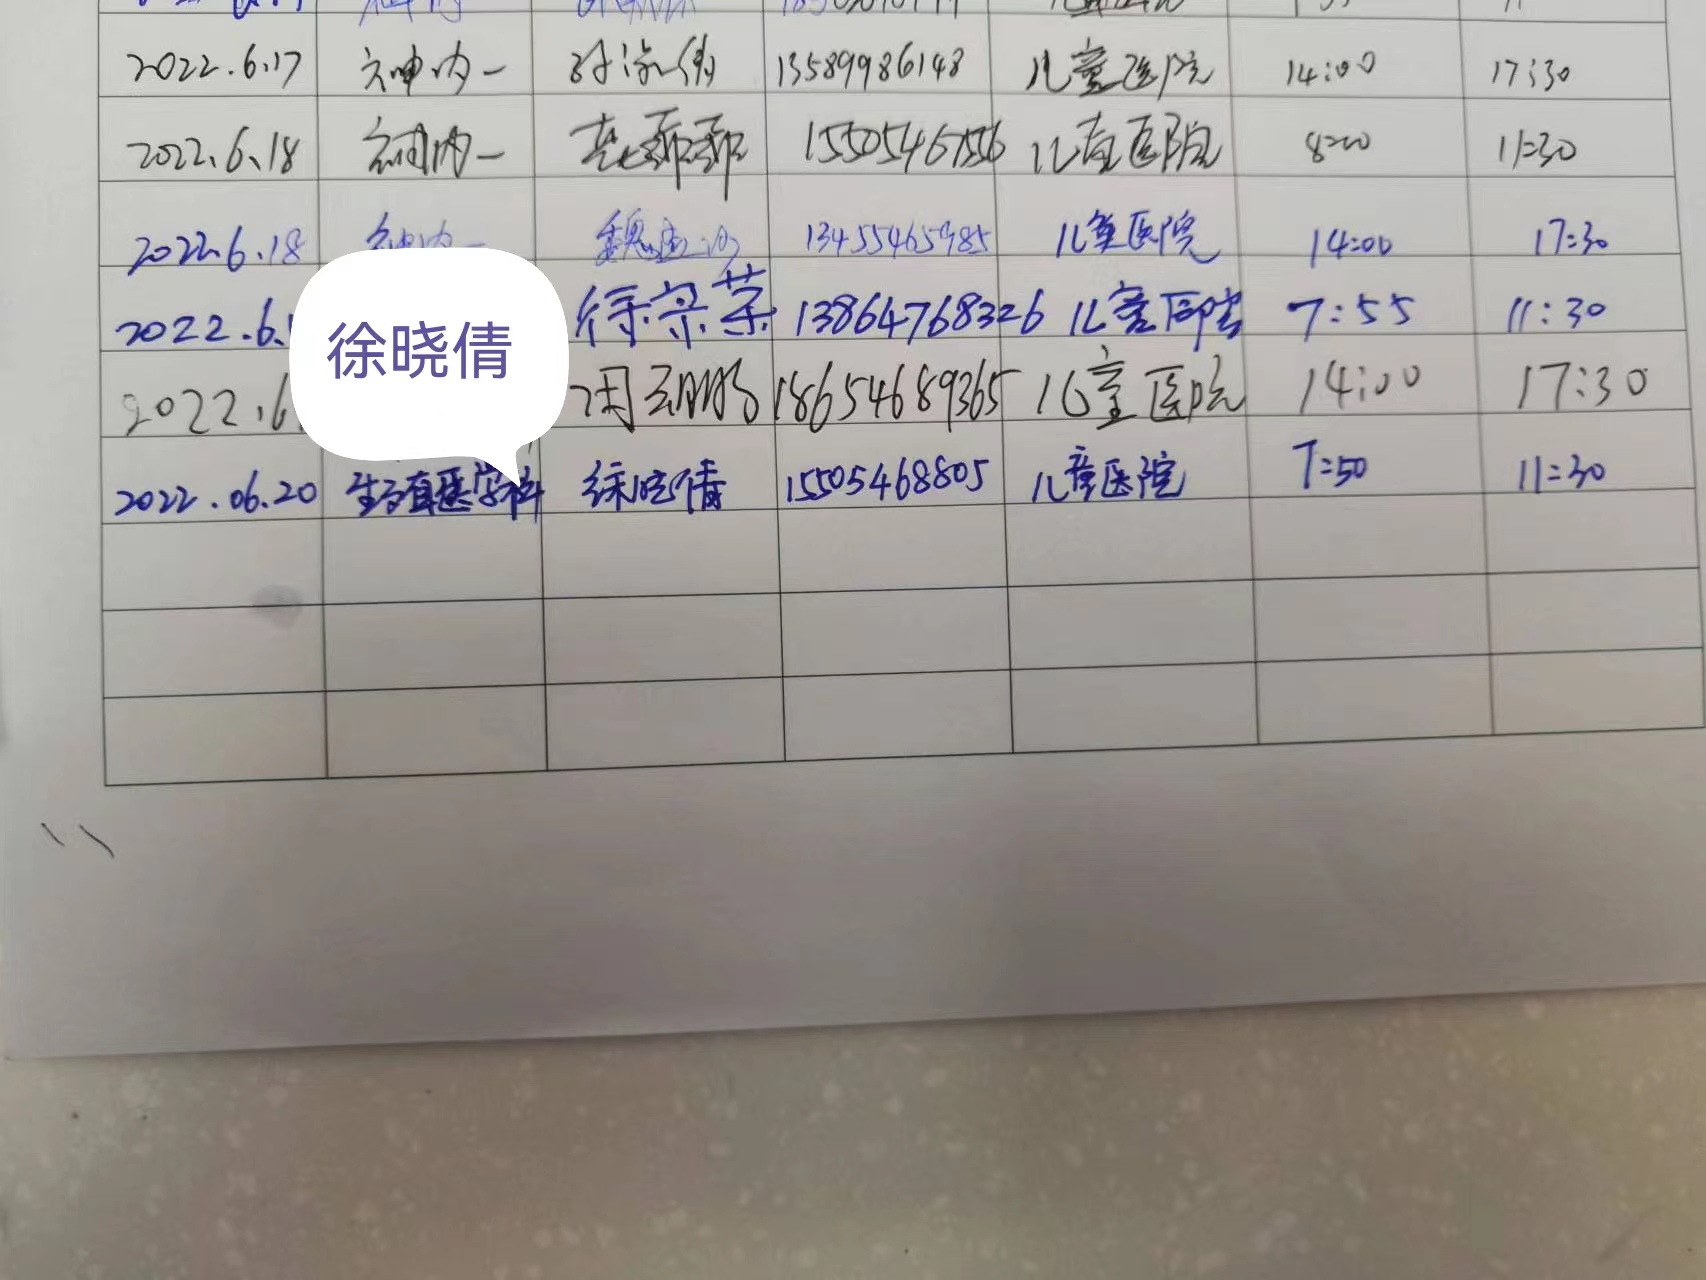 2022.6.17 神内一 13589986148 儿童医院 14:00 17:30
2022.6.18 神内一 儿童医院 8:00 11:30
2022.6.18 神内一 13455465985 儿童医院 14:00 17:30
2022.6. 徐宗荣 13864768326 儿童医院 7:55 11:30
徐晓倩
2022.6 周 18654689365 儿童医院 14:00 17:30
2022.06.20 生殖医学科 徐晓倩 15505468805 儿童医院 7:50 11:30